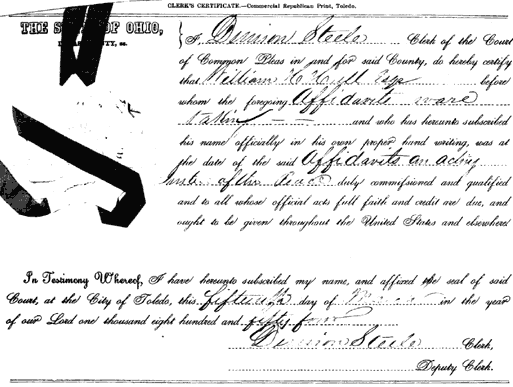 CLERK'S CERTIFICATE.—Commercial Republican Print, Toledo.
THE STATE OF OHIO,
COUNTY, ss.
I Denison Steele Clerk of the Court
of Common Pleas in and for said County, do hereby certify
that William H Hall Esqr before
whom the foregoing Affidavits ware
taken and who has hereunto subscribed
his name officially in his own proper hand writing, was at
the date of the said Affidavits an acting
of the Peace duly commissioned and qualified
and to all whose official acts full faith and credit are due, and
ought to be given throughout the United States and elsewhere
In Testimony Whereof, I have hereunto subscribed my name, and affixed the seal of said
Court, at the City of Toledo, this fifteenth day of March in the year
of our Lord one thousand eight hundred and fifty four
Denison Steele Clerk,
Deputy Clerk.